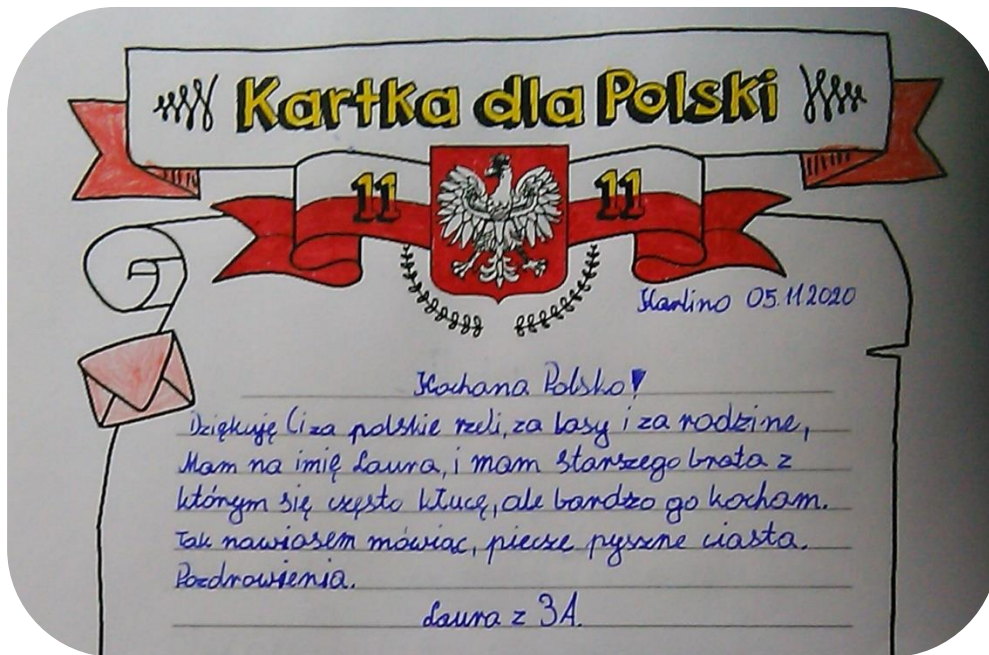 Kartka dla Polski
11 11
Karlino 05.11.2020
Kochana Polsko!
Dziękuję Ci za polskie rzeki, za lasy i za rodzinę,
Mam na imię Laura, i mam starszego brata z
którym się często kłucę, ale bardzo go kocham.
Tak nawiasem mówiąc, piecze pyszne ciasta.
Pozdrowienia.
Laura z 3A.